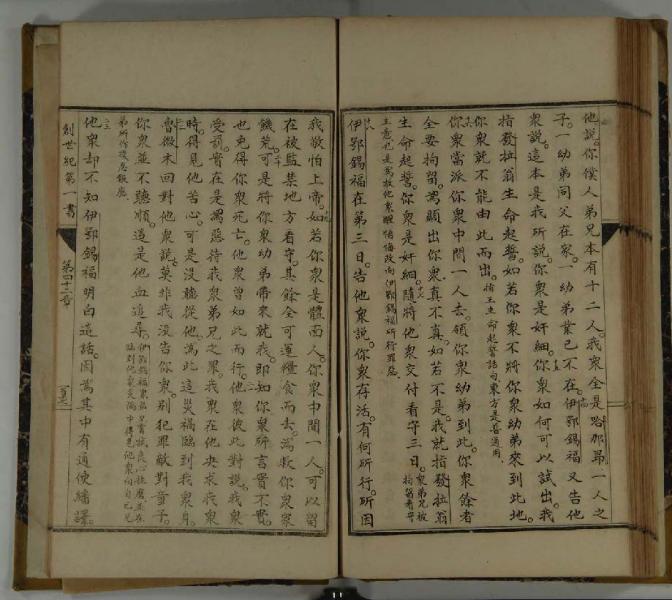 他說。你僕人弟兄本有十二人。我衆全是
一人之
子。一幼弟同父在家。一幼弟業已不在。伊鄂錫福又告他
衆說。這本是我所說。你衆是奸細。你衆如何可以試出。我
指發拉翁生命起誓。如若你衆不將你衆幼弟來到此地。
你衆就不能由此而出。指王生命起誓話句東方是甚通用。
你衆當派你衆中間一人去。領你衆幼弟到此。你衆餘者
全要拘留。爲顯出你衆真不真。如若不是。我就指發拉翁
生命起誓。你衆是奸細。隨將他衆交付看守三日。衆弟兄被拘留看守
伊鄂錫福在第三日。告他衆說。你衆存活。有何所行。所因
我敬怕上帝。如若你衆是體面人。你衆中間一人。可以留
在被監禁地方看守。其餘全可運糧食而去。爲救你衆家
饑荒。可是將你衆幼弟帶來就我。即知你衆所言實不實。
也免得你衆死亡。他衆曾如此而行。他衆彼此對說。我衆
受罰。實在是爲惡待我衆弟兄之罪。我衆在他央求我衆
時。得見他苦心。可是沒聽從他。爲此這災禍臨到我衆身。
魯微未回對他衆說。莫非我沒告你衆。別犯罪敵對童子。
你衆並不聽順。這是他血追尋。
他衆却不知伊鄂錫福明白這話。因爲其中有通使繙譯。
創世紀第一書
第四十二章